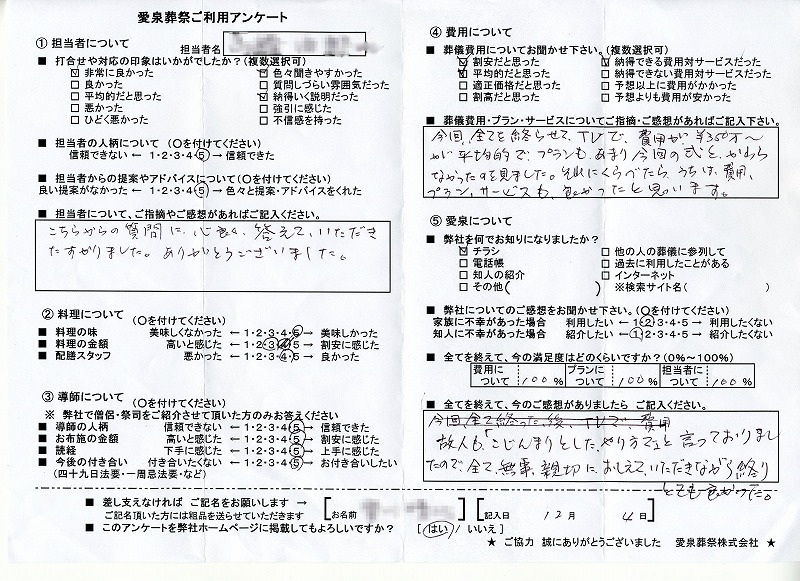 愛泉葬祭ご利用アンケート
① 担当者について
担当者名
■ 打合せや対応の印象はいかがでしたか?(複数選択可)
☑ 非常に良かった ☑ 色々聞きやすかった
□ 良かった □ 質問しづらい雰囲気だった
□ 平均的だと思った ☑ 納得いく説明だった
□ 悪かった □ 強引に感じた
□ ひどく悪かった □ 不信感を持った
■ 担当者の人柄について (○を付けてください)
信頼できない ← 1・2・3・4・5 → 信頼できた
■ 担当者からの提案やアドバイスについて(○を付けてください)
良い提案がなかった ← 1・2・3・4・5 → 色々と提案・アドバイスをくれた
■ 担当者について、ご指摘やご感想があればご記入ください。
こちらからの質問に、心良く、答えて、いただき
たすかりました。ありがとうございました。
② 料理について
(○を付けてください)
■ 料理の味 美味しくなかった ← 1・2・3・4・5 → 美味しかった
■ 料理の金額 高いと感じた ← 1・2・3・4・5 → 割安に感じた
■ 配膳スタッフ 悪かった ← 1・2・3・4・5 → 良かった
③ 導師について
(○を付けてください)
※ 弊社で僧侶・祭司をご紹介させて頂いた方のみお答えください
■ 導師の人柄 信頼できない ← 1・2・3・4・5 → 信頼できた
■ お布施の金額 高いと感じた ← 1・2・3・4・5 → 割安に感じた
■ 読経 下手に感じた ← 1・2・3・4・5 → 上手に感じた
■ 今後の付き合い 付き合いたくない ← 1・2・3・4・5 → お付き合いしたい
(四十九日法要・一周忌法要・など)
④ 費用について
■ 葬儀費用についてお聞かせ下さい。(複数選択可)
☑ 割安だと思った ☑ 納得できる費用対サービスだった
☑ 平均的だと思った □ 納得できない費用対サービスだった
□ 適正価格だと思う □ 予想以上に費用がかかった
□ 割高だと思った □ 予想よりも費用が安かった
■ 葬儀費用・プラン・サービスについてご指摘・ご感想があればご記入下さい。
今回、全てを終らせて、TVで、費用が、¥350万~
が平均的で、プランも、あまり今回の式と、かわら
なかったのを見ました。それにくらべたら、うちは、費用、
プラン、サービスも、良かったと思います。
⑤ 愛泉について
■ 弊社を何でお知りになりましたか?
☑ チラシ □ 他の人の葬儀に参列して
□ 電話帳 □ 過去に利用したことがある
□ 知人の紹介 □ インターネット
□ その他( ) ※検索サイト名( )
■ 弊社についてのご感想をお聞かせ下さい。(○を付けてください)
家族に不幸があった場合 利用したい ← 1・2・3・4・5 → 利用したくない
知人に不幸があった場合 紹介したい ← 1・2・3・4・5 → 紹介したくない
■ 全てを終えて、今の満足度はどのくらいですか?(0%~100%)
費用について 100% プランについて 100% 担当者について 100%
■ 全てを終えて、今のご感想がありましたら ご記入ください。
今回、全て終った後、TVで、費用
故人も、「こじんまりとした、やり方で」と言っておりまし
たので、全て、無事、親切に、おしえて、いただきながら終り
とても良かった。
■ 差し支えなければ ご記名をお願いします →
ご記名頂いた方には粗品を送らせていただきます
[お名前 ] [記入日 12月 4日]
■ このアンケートを弊社ホームページに掲載してもよろしいですか? [はい / いいえ]
★ ご協力 誠にありがとうございました 愛泉葬祭株式会社 ★